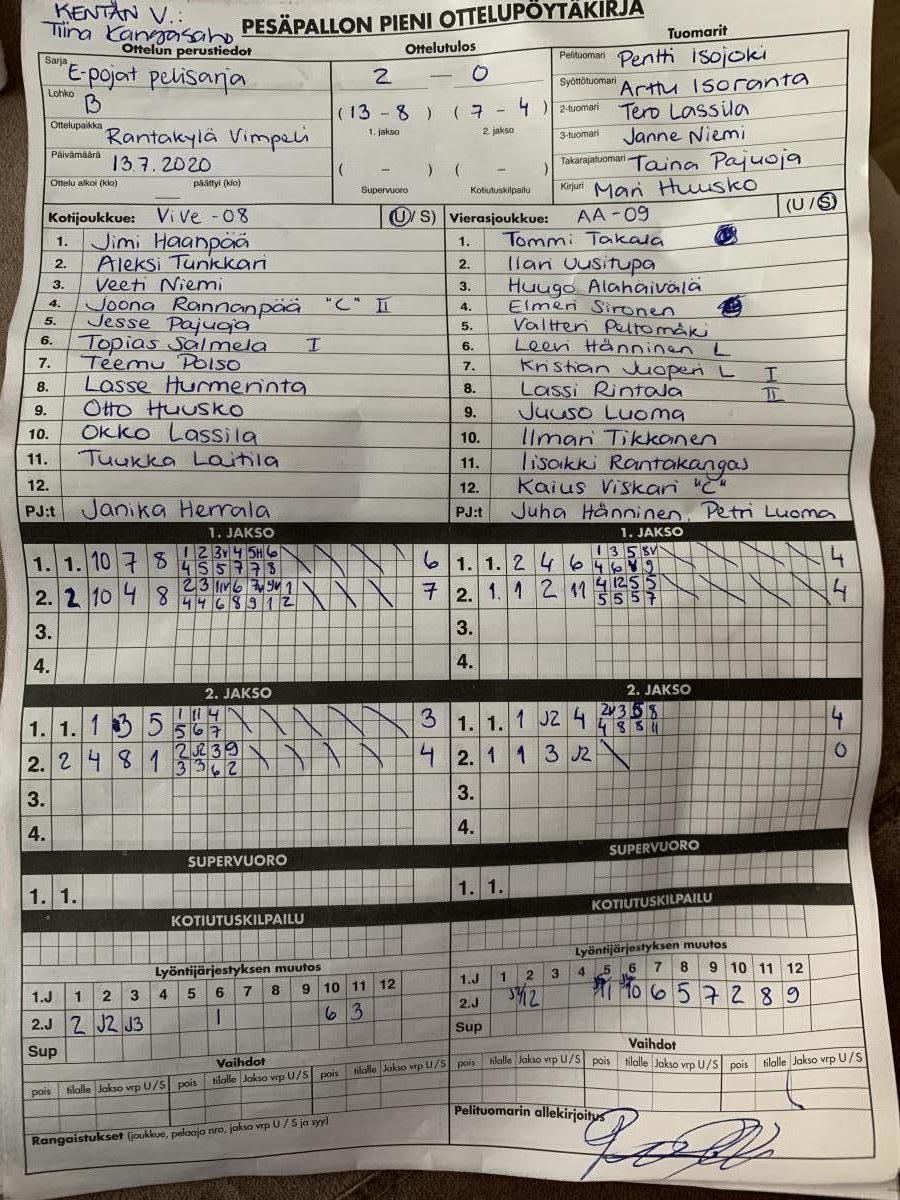 KENTÄN V.:
Tiina Kangasaho
PESÄPALLON PIENI OTTELUPÖYTÄKIRJA
Ottelun perustiedot
Sarja E-pojat pelisarja
Lohko B
Ottelupaikka Rantakylä Vimpeli
Päivämäärä 13.7.2020
Ottelu alkoi (klo) päättyi (klo)
Ottelutulos
2 — 0
(13 - 8) (7 - 4)
1. jakso 2. jakso
( - ) ( - )
Supervuoro Kotiutuskilpailu
Tuomarit
Pelituomari Pentti Isojoki
Syöttötuomari Arttu Isoranta
2-tuomari Tero Lassila
3-tuomari Janne Niemi
Takarajatuomari Taina Pajuoja
Kirjuri Mari Huusko
Kotijoukkue: ViVe -08 (U/S)
1. Jimi Haanpää
2. Aleksi Tunkkari
3. Veeti Niemi
4. Joona Rannanpää "C" II
5. Jesse Pajuoja
6. Topias Salmela I
7. Teemu Polso
8. Lasse Hurmerinta
9. Otto Huusko
10. Okko Lassila
11. Tuukka Laitila
12.
PJ:t Janika Herrala
Vierasjoukkue: AA -09 (U/S)
1. Tommi Takala
2. Ilari Uusitupa
3. Huugo Alahaivälä
4. Elmeri Sironen
5. Valtteri Peltomäki
6. Leevi Hänninen L
7. Kristian Juoperi L I
8. Lassi Rintala II
9. Juuso Luoma
10. Ilmari Tikkanen
11. Iisakki Rantakangas
12. Kaius Viskari "C"
PJ:t Juha Hänninen, Petri Luoma
1. JAKSO
1. 1. 10 7 8 1 2 3v 4 5H 6 6
4 5 5 7 7 8
2. 2 10 4 8 2 3 11v 6 7v 9v 1 7
4 4 6 8 9 1 2
3.
4.
1. JAKSO
1. 1. 2 4 6 1 3 5 8v 4
4 6 8 9
2. 1. 1 2 11 4 12 5 5 4
5 5 5 7
3.
4.
2. JAKSO
1. 1. 1 3 5 1 11 4 3
5 6 7
2. 2 4 8 1 2 J2 3 9 4
3 3 6 2
3.
4.
2. JAKSO
1. 1. 1 J2 4 2v 3 5 8 4
4 8 8 11
2. 1 1 3 J2 0
3.
4.
SUPERVUORO
1. 1.
SUPERVUORO
1. 1.
KOTIUTUSKILPAILU
KOTIUTUSKILPAILU
Lyöntijärjestyksen muutos
1.J 1 2 3 4 5 6 7 8 9 10 11 12
2.J 2 J2 J3 1 6 3
Sup
Vaihdot
pois tilalle Jakso vrp U/S pois tilalle Jakso vrp U/S pois tilalle Jakso vrp U/S
Rangaistukset (joukkue, pelaaja nro, jakso vrp U / S ja syy)
Lyöntijärjestyksen muutos
1.J 1 2 3 4 5 6 7 8 9 10 11 12
2.J 12 11 10 6 5 7 2 8 9
Sup
Vaihdot
pois tilalle Jakso vrp U/S pois tilalle Jakso vrp U/S pois tilalle Jakso vrp U/S
Pelituomarin allekirjoitus